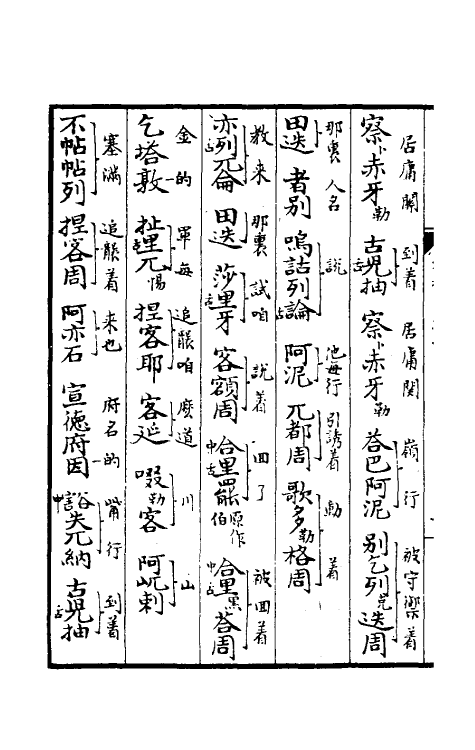 居庸關 到着 居庸關 嶺行 被守禦着
察卜赤牙勒 古舌兒抽 察卜赤牙勒 荅巴阿泥 别乞列克迭周
那裏 人名 說 他每行 引誘着 動着
田迭 者别 嗚詁列舌論 阿泥 兀都周 歌多勒格周
教来 那裏 試咱 說着 回了 被回着
亦舌列兀侖 田迭 莎舌里牙 客額周 中合舌里罷原作伯 中合舌里黑荅周
金的 軍每 追襲咱 麽道 川 山
乞塔敦 扯舌里兀惕 捏客耶 客延 啜勒客 阿屼剌
塞滿 追襲着 来也 府名的 嘴行 到着
不帖帖列 捏客周 阿亦石 宣德府因 中豁失兀納 古舌兒抽